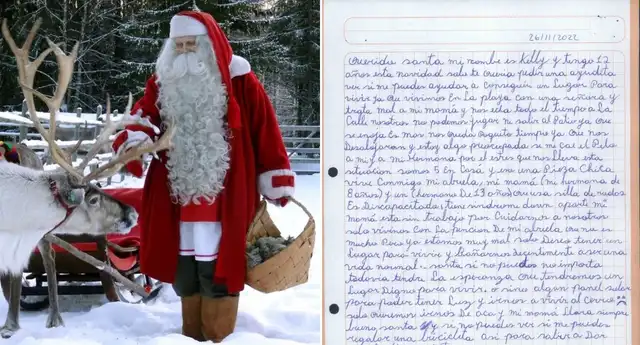 26/11/2022
Querida santa mi nombe es Kelly y tengo 17
años esta navidad solo te Queria pedir una ayudita
ver si me puedes ayudar a Conseguir un Lugar Para
vivir ya Que vivimos En La playa con una señora y
trata mal a mi mamá y nos echa todo el tiempo a La
Calle nosotros no podemos jugar ni salir al Patio ya Que
se enoja Es mas nos queda Poquito tiempo ya Que nos
Desalojaran y estoy algo preocupada se mi cae el Pelo
a mi y a mi Hermana por el estres que nos lleva esta
situacion somos 5 En Casa y en una Pieza Chica
vive Conmigo mi abuela, mi mamá (mi hermana de
8 años) y un Hermano De 13 años usa silla de ruedas
Es Discapacitado (tiene sindrome down, aparte mi
mamá esta sin trabajo por Cuidarnos a nosotros
solo vivimos con La Pencion De mi abuela Que no es
mucho Pero ya estamos muy mal solo Deseo tener un
Lugar para vivir y Bañarnos Decentemente asi una
vida normal. santa si no puedes no importa
todavia tendre La esperanza Que tendremos un
Lugar Digno para vivir. o sino algun panel solar
para poder tener Luz y irnos a vivir al Cerro
solo Queremos irnos De aca y mi mamá Llora siempre
bueno santa y si no puedes ver si me puedes
regalar una bicicleta asi para saber a Dar